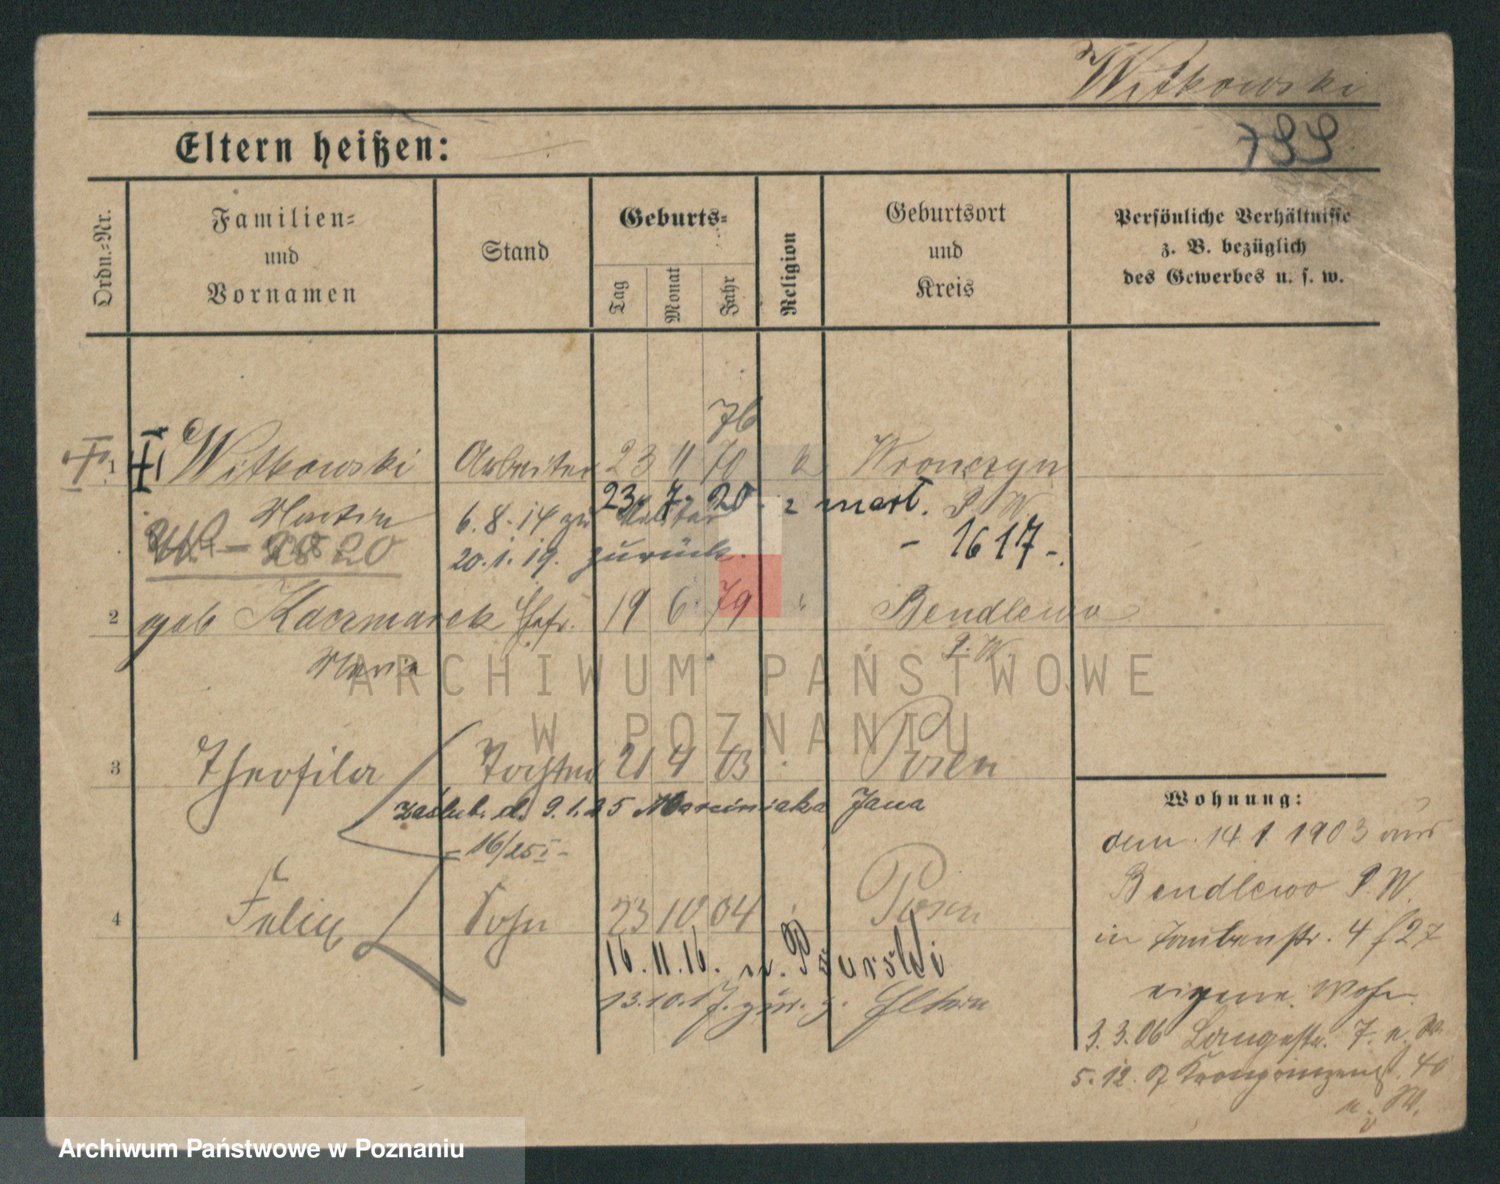 Witkowski
799
Eltern heißen:
Ordn.-Nr.
Familien- und Vornamen
Stand
Geburts-
Tag
Monat
Jahr
Religion
Geburtsort und Kreis
Persönliche Verhältnisse
z. B. bezüglich
des Gewerbes u. s. w.
76
1 Witkowski Arbeiter 23 11 70 k Wronczyn
Martin
23. 7. 20 mart. P. W.
6.8.14 zu Militär
20.1.19. zurück. - 1617-
2 geb Kaczmarek Ehefr. 19 6 79 Bendlewo
Maria P. W.
ARCHIWUM PAŃSTWOWE
W POZNANIU
3 Theofila Tochter 21 4 03 Posen
zaślub. d. 9.1.25 Marciniaka Jana
16/25 I -
4 Felix Sohn 23 10 04 Posen
16.11.16. n.
13.10.17. zur. z. Eltern
Wohnung:
dem 14 1 1903 aus
Bendlewo P. W.
in Taubenstr. 4 f 27
eigene Wohn.
3.3.06 Langestr. 7. e. W.
5.12.07 Kronprinzenst. 40
e. W.
Archiwum Państwowe w Poznaniu